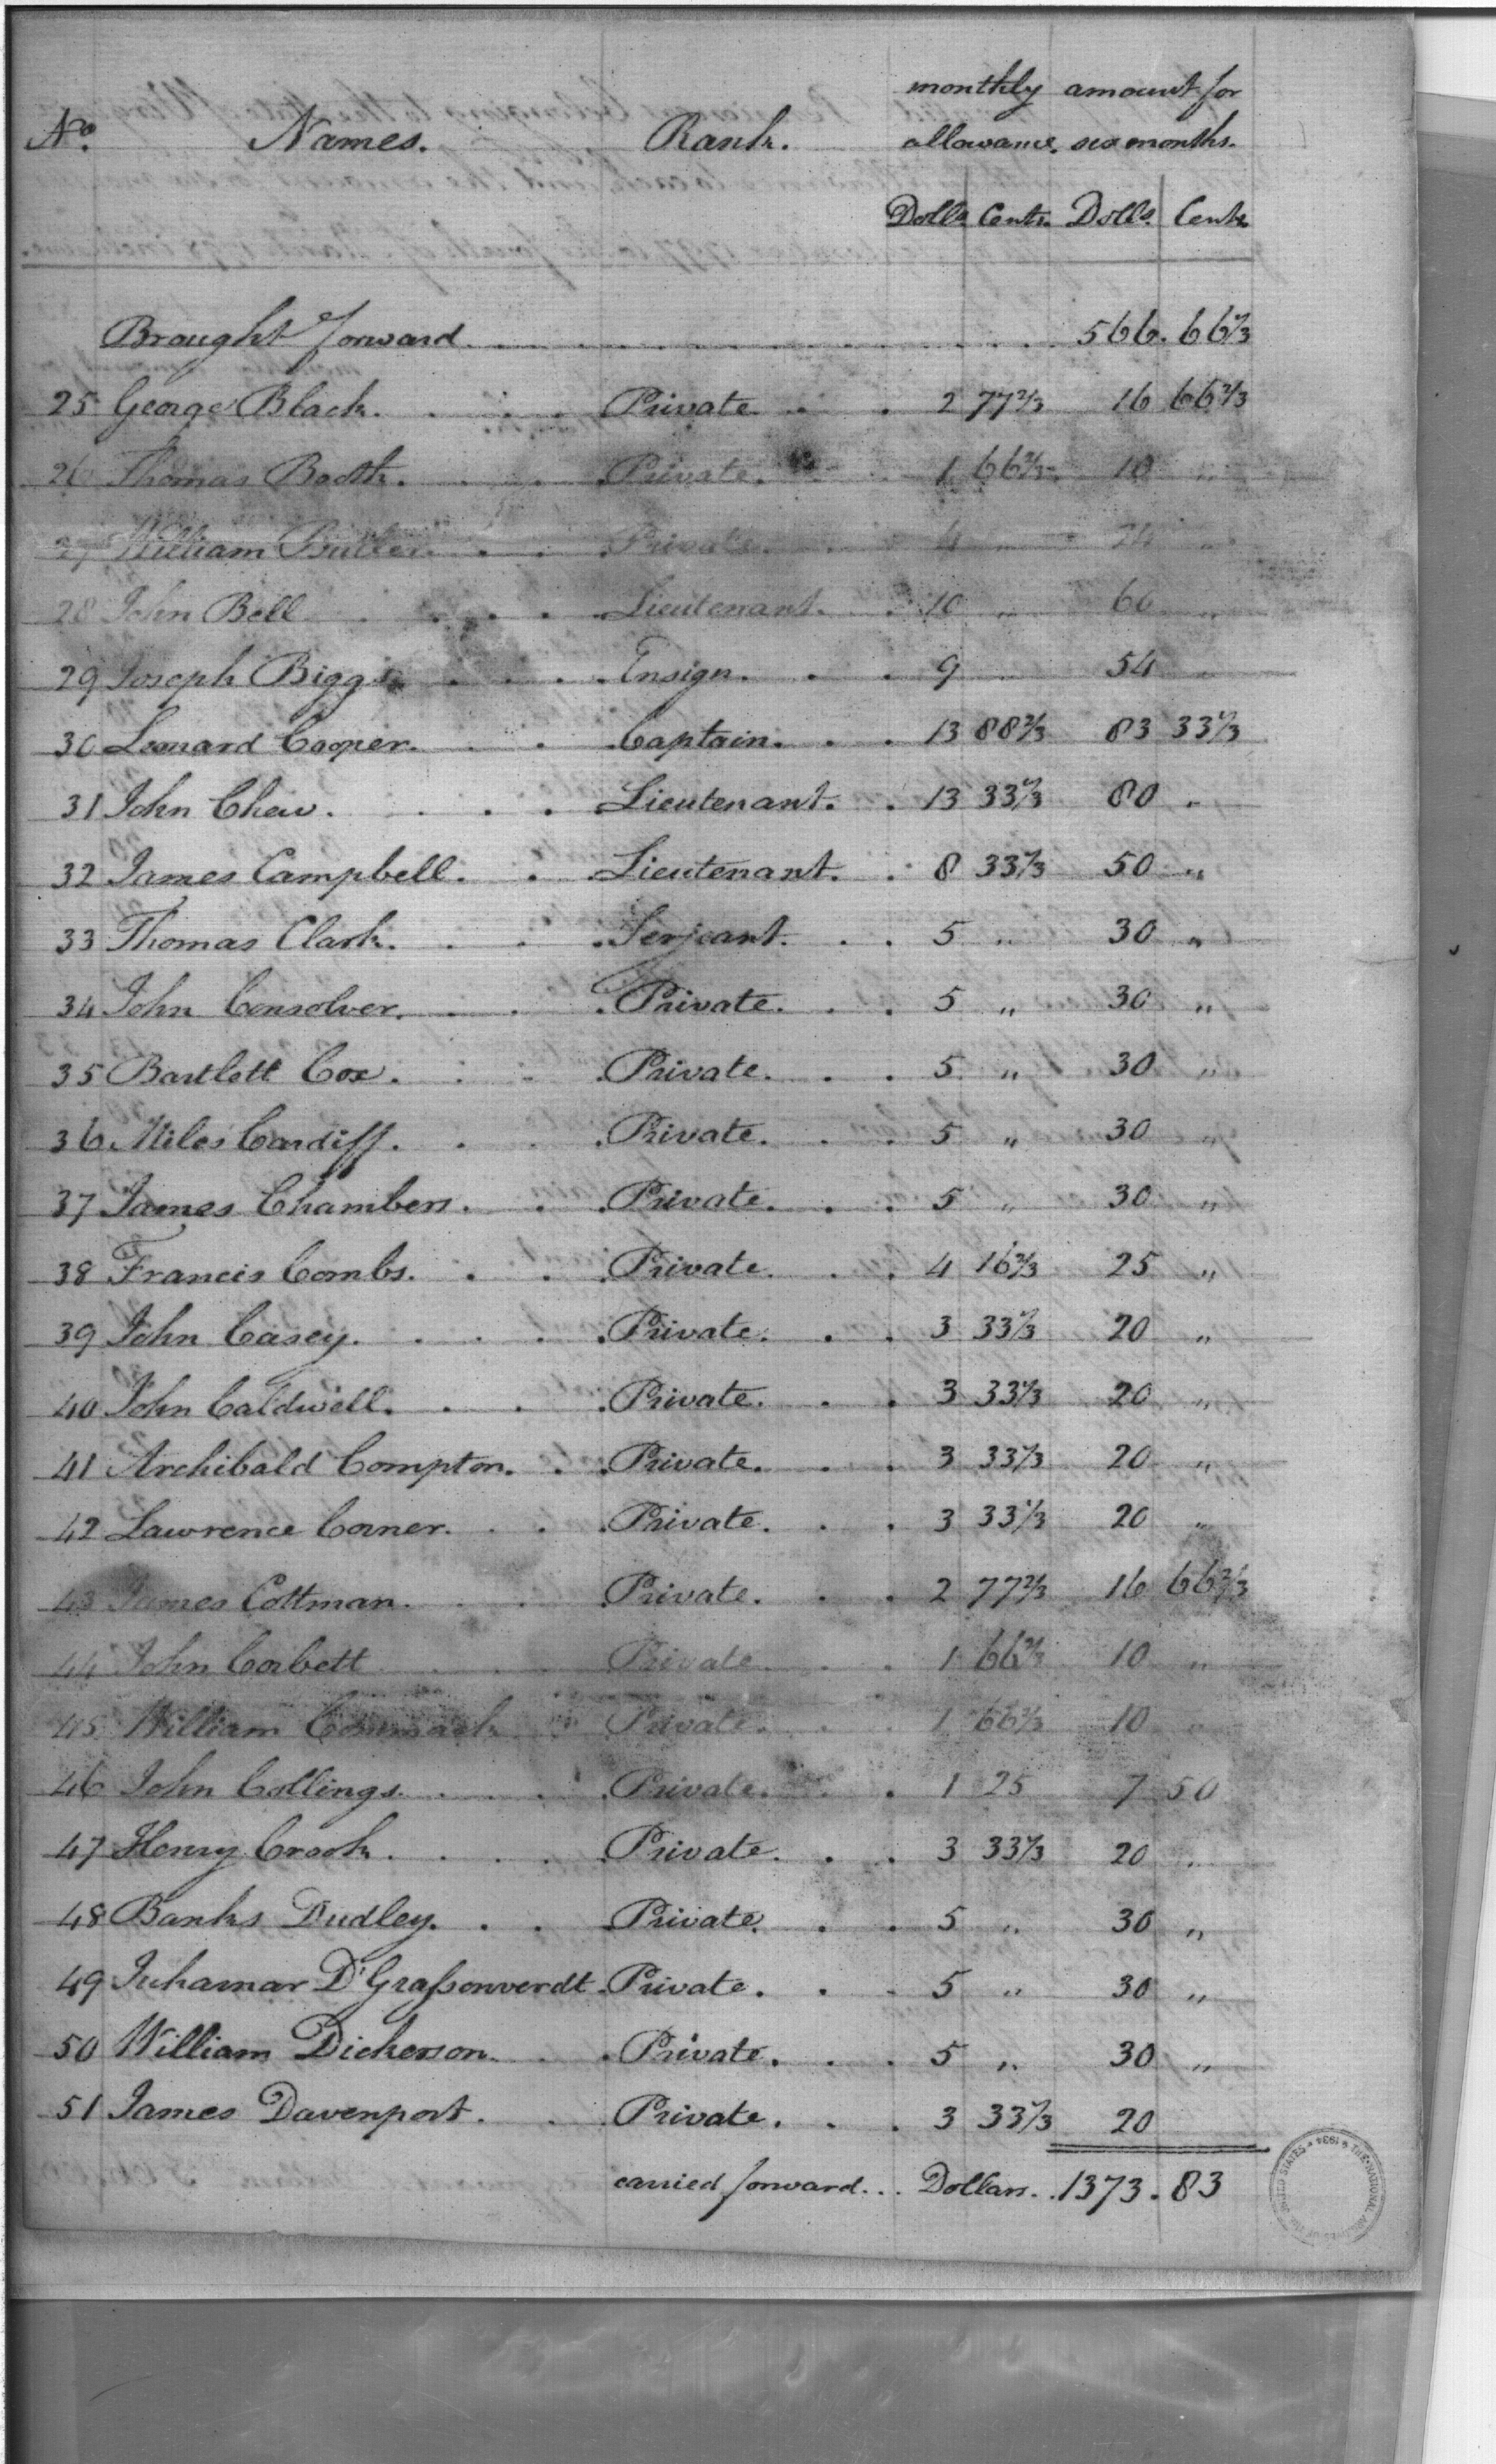 monthly amount for
No. Names. Rank. allowance. six months.
Dolls. Cents. Dolls. Cents.
Braught forward 566. 66 2/3
25 George Black. Private. 2 77 2/3 16 66 2/3
26 Thomas Booth. Private. 1 66 2/3 10 "
27 William Butler. Private. 4 " 24 "
28 John Bell Lieutenant. 10 " 60 "
29 Joseph Biggs. Ensign. 9 54 "
30 Leonard Cooper. Captain. 13 88 2/3 83 33 1/3
31 John Chew. Lieutenant. 13 33 1/3 80 "
32 James Campbell. Lieutenant. 8 33 1/3 50 "
33 Thomas Clark. Serjeant. 5 " 30 "
34 John Consolver. Private. 5 " 30 "
35 Bartlett Cox. Private. 5 " 30 "
36 Miles Cardiff. Private. 5 " 30 "
37 James Chambers. Private. 5 " 30 "
38 Francis Combs. Private. 4 16 2/3 25 "
39 John Casey. Private. 3 33 1/3 20 "
40 John Caldwell. Private. 3 33 1/3 20 "
41 Archibald Compton. Private. 3 33 1/3 20 "
42 Lawrence Corner. Private. 3 33 1/3 20 "
43 James Cottman. Private. 2 77 2/3 16 66 2/3
44 John Corbett Private 1 66 2/3 10 "
45 William Private. 1 66 2/3 10 "
46 John Collings. Private. 1 25 7 50
47 Henry Crook. Private. 3 33 1/3 20 "
48 Banks Dudley. Private. 5 " 30 "
49 Juhamar D'Graſsonverdt Private. 5 " 30 "
50 William Dickerson. Private. 5 " 30 "
51 James Davenport. Private. 3 33 1/3 20
carried forward... Dollars. 1373. 83